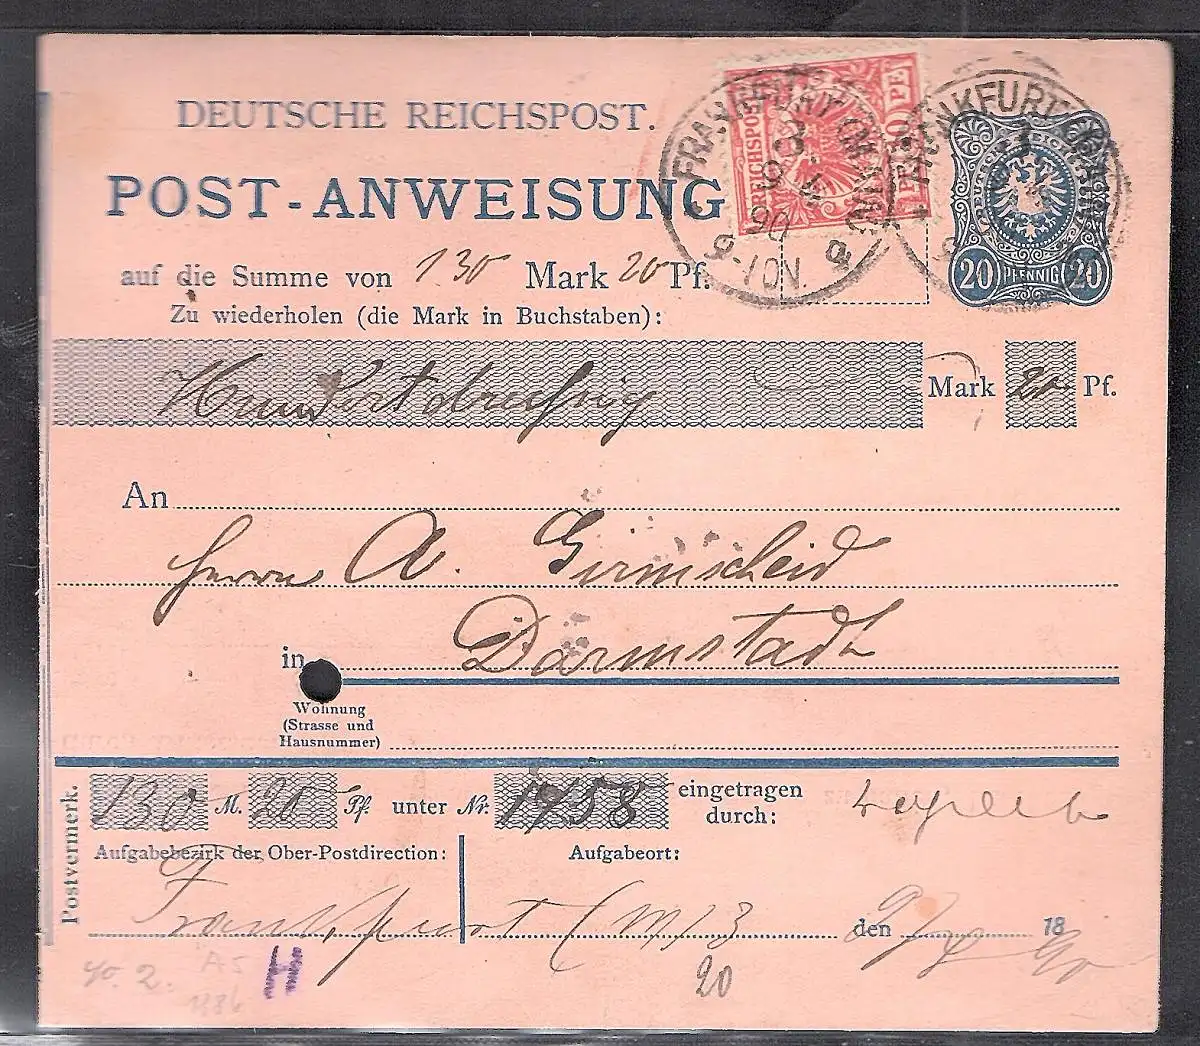 DEUTSCHE REICHSPOST.
POST-ANWEISUNG
auf die Summe von 130 Mark 20 Pf.
Zu wiederholen (die Mark in Buchstaben):
Hundertdreissig Mark 20 Pf.
REICHSPOST 10 PF
FRANKFURT (MAIN)
9-10 N.
FRANKFURT (MAIN)
20 PFENNIG 20
An
Herrn A. Girmscheid
in Darmstadt
Wohnung
(Strasse und
Hausnummer)
Postvermerk.
130 M. 20 Pf. unter Nr. 1758 eingetragen
durch:
Aufgabebezirk der Ober-Postdirection: Aufgabeort:
Frankfurt (M) 3 den 9/ 18 90
20
H
A5